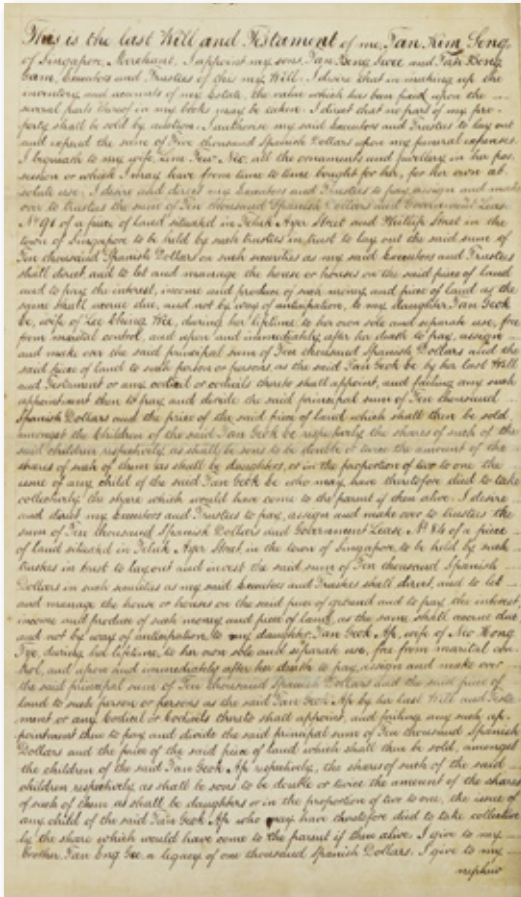 This is the last Will and Testament of me, Tan Kim Seng,
of Singapore, Merchant. I appoint my sons Tan Beng Swee and Tan Beng
Gum, Executors and Trustees of this my Will. I desire that in making up the
inventory and accounts of my Estate, the value which has been paid upon the
several parts thereof in my books may be taken. I direct that no part of my pro-
perty shall be sold by auction. I authorise my said Executors and Trustees to lay out
and expend the sum of Five thousand Spanish Dollars upon my funeral expenses.
I bequeath to my wife, Lim Neo, all the ornaments and jewellery in her pos-
session or which I may have from time to time bought for her, for her own ab-
solute use. I desire and direct my Executors and Trustees to pay, assign and make
over to trustees the sum of Ten thousand Spanish Dollars and Government Lease
No 91 of a piece of land situated in Teluk Ayer Street and Phillip Street in the
town of Singapore to be held by such trustees in trust to lay out the said sum of
Ten thousand Spanish Dollars on such securities as my said Executors and Trustees
shall direct and to let and manage the house or houses on the said piece of land
and to pay the interest, income and produce of such money and piece of land as the
same shall accrue due, and not by way of anticipation, to my daughter Tan Geok
be, wife of Lee Cheng Wee, during her lifetime to her own sole and separate use, free
from marital control, and upon and immediately after her death to pay, assign
and make over the said principal sum of Ten thousand Spanish Dollars and the
said piece of land to such person or persons as the said Tan Geok be by her last Will
and Testament or any codicil or codicils thereto shall appoint, and failing any such
appointment then to pay and divide the said principal sum of Ten thousand
Spanish Dollars and the price of the said piece of land which shall then be sold
amongst the Children of the said Tan Geok be respectively the shares of such of the
said children respectively, as shall be sons to be double or twice the amount of the
shares of such of them as shall be daughters, or in the proportion of two to one the
issue of any child of the said Tan Geok be who may have theretofore died to take
collectively the share which would have come to the parent if then alive. I desire
and direct my Executors and Trustees to pay, assign and make over to trustees the
sum of Ten thousand Spanish Dollars and Government Lease No 84 of a piece
of land situated in Teluk Ayer Street, in the town of Singapore, to be held by such
trustees in trust to lay out and invest the said sum of Ten thousand Spanish
Dollars in such securities as my said Executors and Trustees shall direct, and to let
and manage the house or houses on the said piece of ground and to pay the interest,
income and produce of such money and piece of land, as the same shall accrue due
and not by way of anticipation, to my daughter Tan Geok Ap, wife of Neo Hong
during her lifetime, to her own sole and separate use, free from marital con-
trol, and upon and immediately after her death to pay, assign and make over
the said principal sum of Ten thousand Spanish Dollars and the said piece of
land to such person or persons as the said Tan Geok Ap by her last Will and Testa-
ment or any Codicil or Codicils thereto shall appoint, and failing any such ap-
pointment then to pay and divide the said principal sum of Ten thousand Spanish
Dollars and the price of the said piece of land which shall then be sold, amongst
the children of the said Tan Geok Ap respectively, the shares of such of the said
children respectively, as shall be sons to be double or twice the amount of the shares
of such of them as shall be daughters or in the proportion of two to one, the issue of
any child of the said Tan Geok Ap who may have theretofore died to take collective-
ly the share which would have come to the parent if then alive. I give to my
brother Tan Eng Gee a legacy of one thousand Spanish Dollars. I give to my
nephew